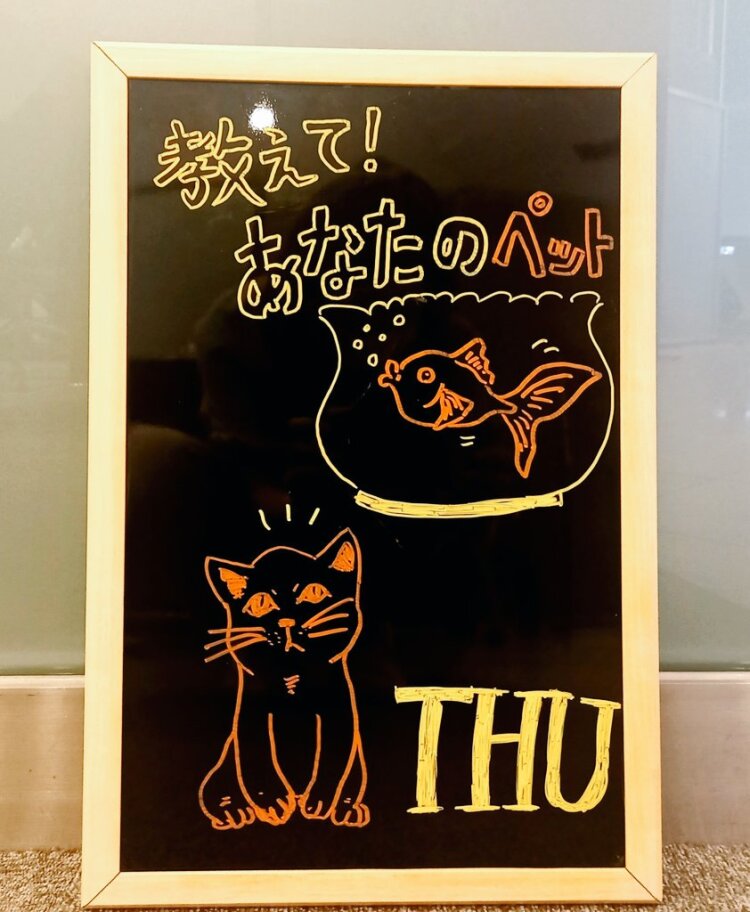 教えて!
あなたのペット
THU